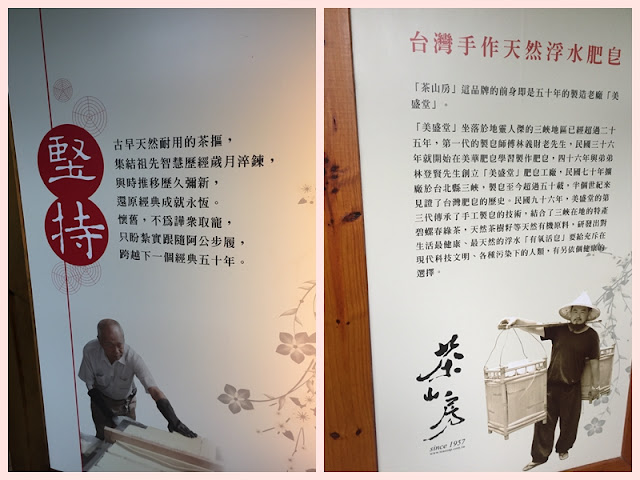 堅持
古早天然耐用的茶摳，
集結祖先智慧歷經歲月淬鍊，
與時推移歷久彌新，
還原經典成就永恆。
懷舊，不為譁眾取寵，
只盼紮實跟隨阿公步履，
跨越下一個經典五十年。
台灣手作天然浮水肥皂
「茶山房」這品牌的前身即是五十年的製造老廠「美
盛堂」。
「美盛堂」坐落於地靈人傑的三峽地區已經超過二十
五年，第一代的製皂師傅林義財老先生，民國三十六
年就開始在美華肥皂學習製作肥皂，四十六年與弟弟
林登賢先生創立「美盛堂」肥皂工廠，民國七十年擴
廠於台北縣三峽，製皂至今超過五十載，半個世紀來
見證了台灣肥皂的歷史。民國九十六年，美盛堂的第
三代傳承了手工製皂的技術，結合了三峽在地的特產
碧螺春綠茶，天然茶樹籽等天然有機原料，研發出對
生活最健康、最天然的浮水「有氧活皂」要給充斥在
現代科技文明、各種污染下的人類，有另依個健康的
選擇。
茶山房
since 1957